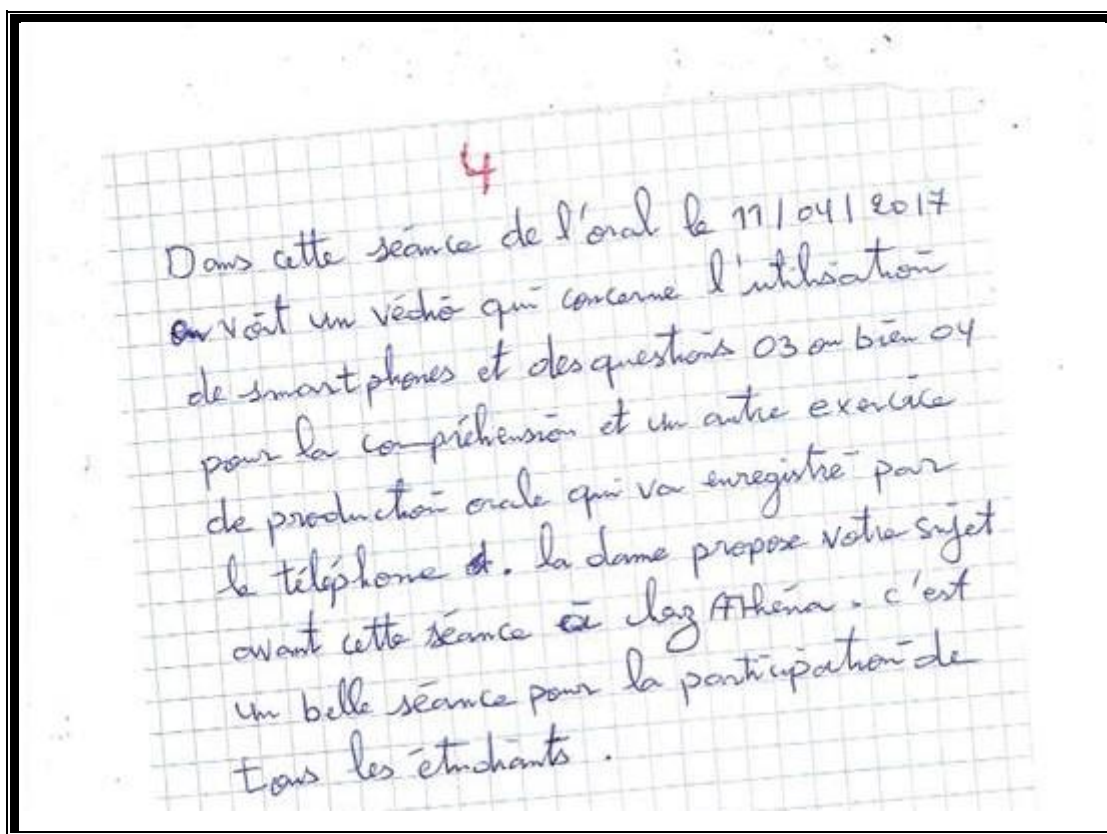 4
Dans cette séance de l'oral le 11/04/2017
on voit un védio qui concerne l'utilisation
de smart phones et des questions 03 ou bien 04
pour la compréhension et un autre exercice
de production orale qui va enregistré par
le téléphone. la dame propose votre sujet
avant cette séance Athéna. c'est
un belle séance pour la participation de
tous les étudiants.